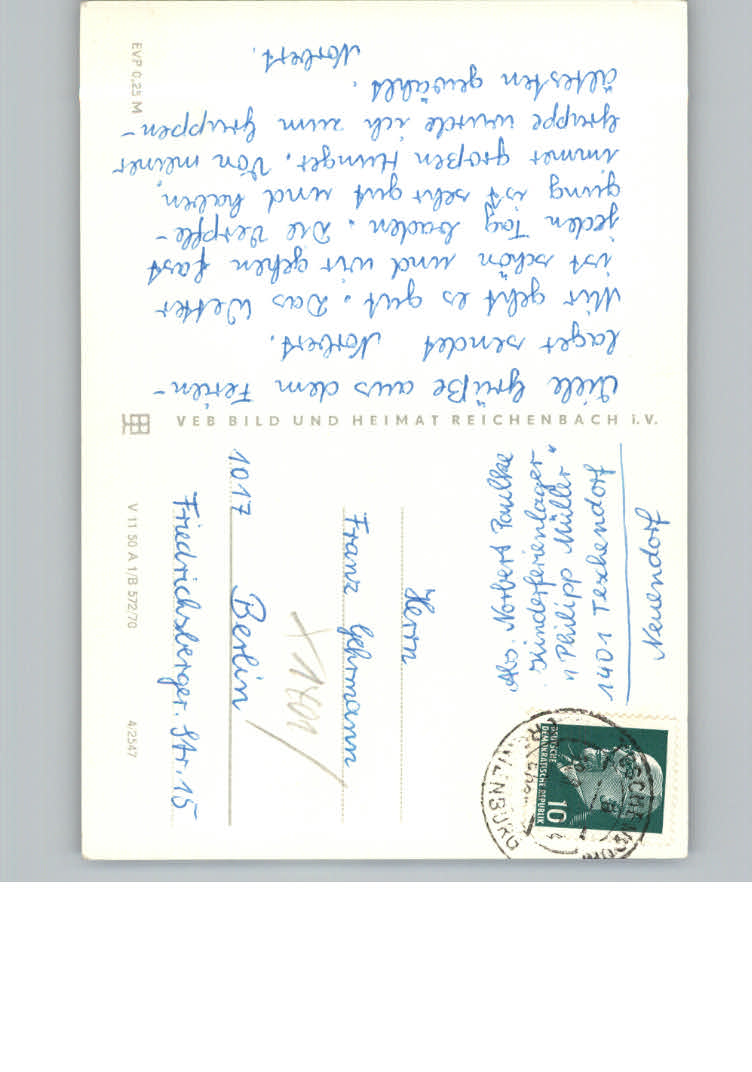 Viele Grüße aus dem Ferien-
lager sendet Norbert.
Mir geht es gut. Das Wetter
ist schön und wir gehen fast
jeden Tag baden. Die Verpfle-
gung ist sehr gut und haben
immer großen Hunger. Von meiner
Gruppe wurde ich zum Gruppen-
ältesten gewählt.
Norbert.
EVP 0,25 M
VEB BILD UND HEIMAT REICHENBACH i.V.
V 11 50 A 1/B 572/70
4/2547
Abs. Norbert Paulke
Kinderferienlager
"Philipp Müller"
1401 Teschendorf
Neuendorf
DEUTSCHE
DEMOKRATISCHE REPUBLIK
10
Herrn
Franz Gehrmann
1401
1017 Berlin
Friedrichsberger. Str. 15